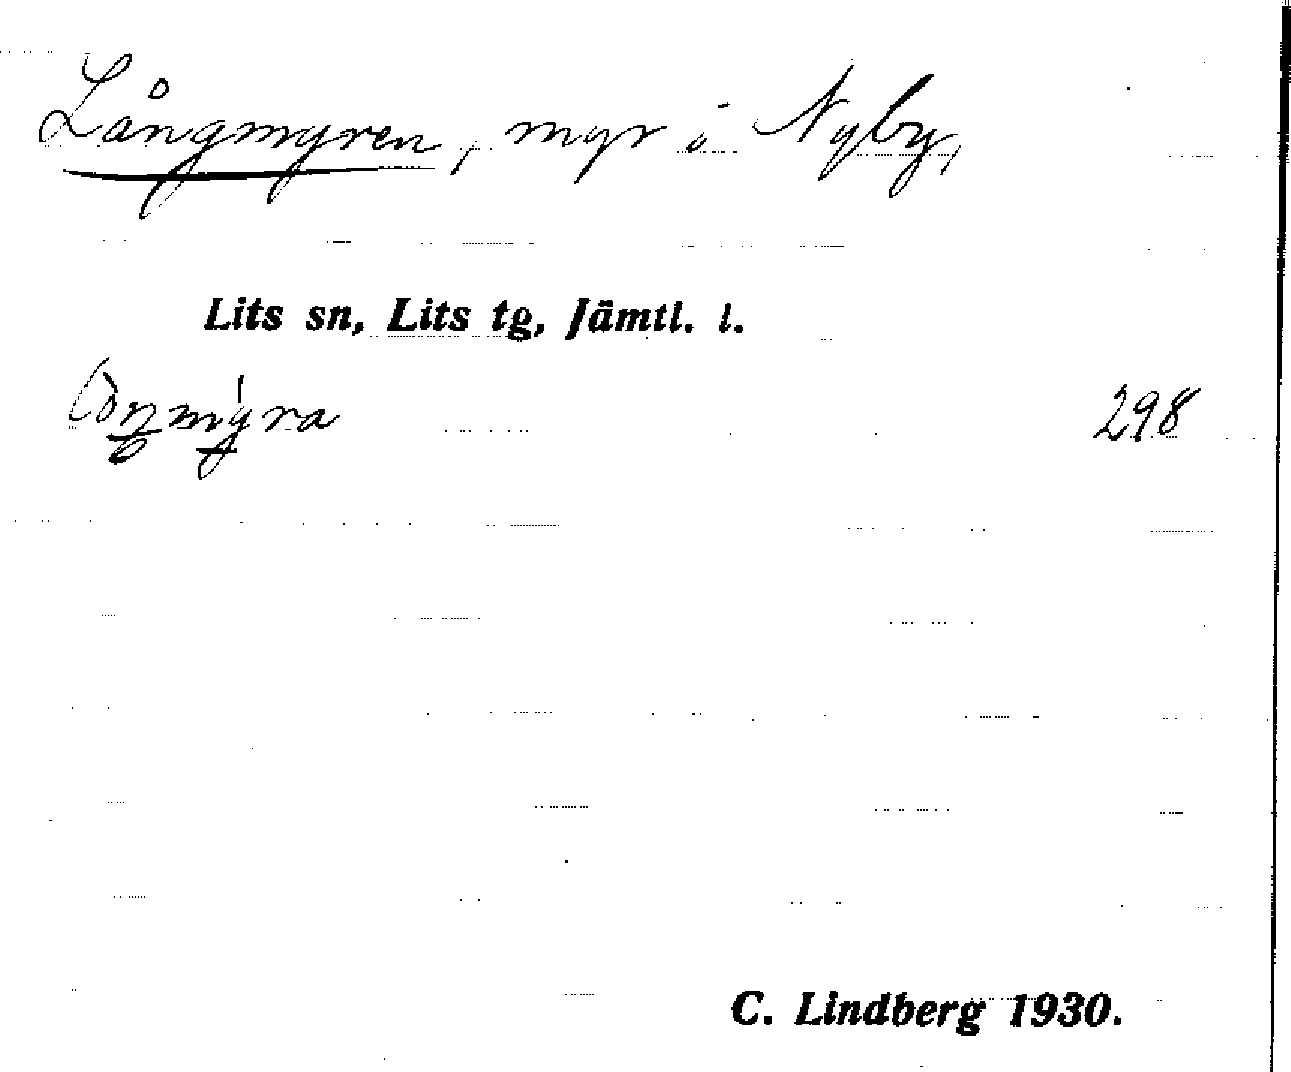 Långmyren, myr i Nyby,
Lits sn, Lits tg, Jämtl. l.
298
C. Lindberg 1930.